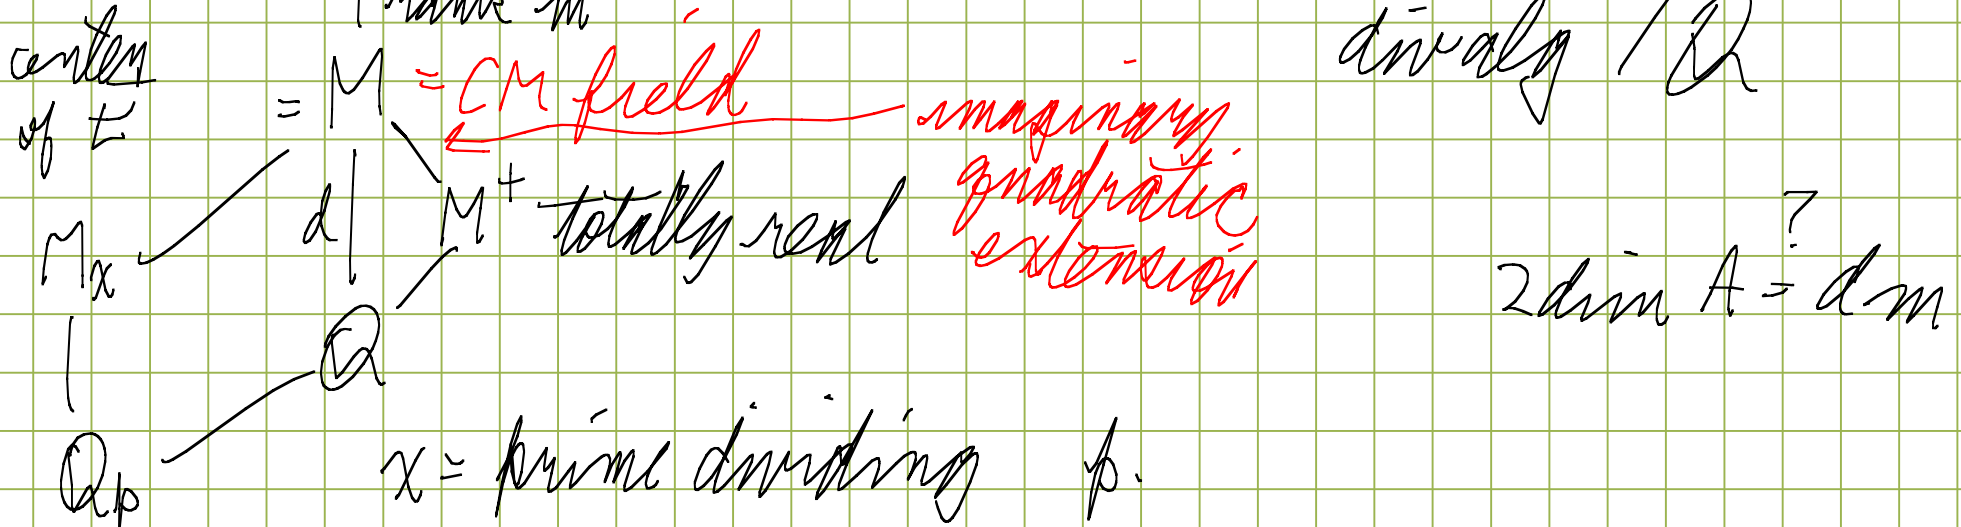 rank m
center
of E
= M = CM field
imaginary
quadratic
extension
div alg / Q
d | M⁺ totally real
M_x
Q
2 dim A ?= dm
Q_p
x = prime dividing p.